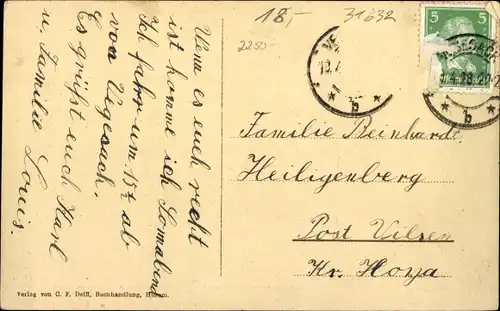 18,-
31632
2250
5 5
Wenn es euch recht
ist komme ich Sonnabend
Ich fahr um 15⁷ ab
von Vegesack,
Es grüßt euch Karl
u. Familie Louis.
VEGESACK
* b *
* b *
Familie Beinhardt
Heiligenberg
Post Vilsen
Kr. Hoya
Verlag von C. F. Delff, Buchhandlung, Husum.